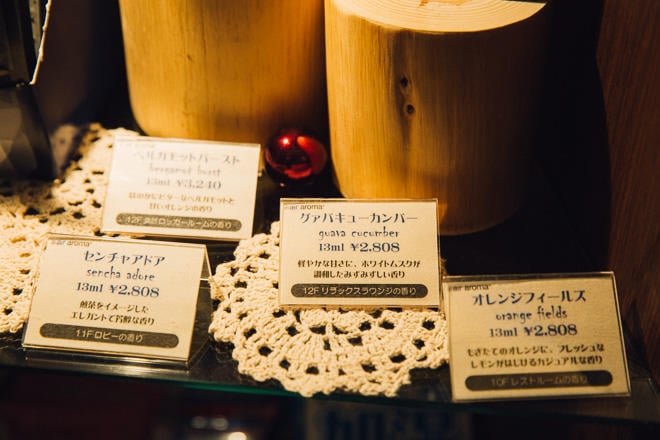 ベルガモットバースト
bergamot burst
13ml ¥3,240
ほのかにビターなベルガモットと
甘いオレンジの香り
ロッカールームの香り
@air aroma
グァバキューカンバー
guava cucumber
13ml ¥2,808
軽やかな甘さに、ホワイトムスクが
調和したみずみずしい香り
12F リラックスラウンジの香り
@air aroma
センチャアドア
sencha adore
13ml ¥2,808
煎茶をイメージした
エレガントで芳醇な香り
11F ロビーの香り
@air aroma
オレンジフィールズ
orange fields
13ml ¥2,808
もぎたてのオレンジに、フレッシュな
レモンがはじけるカジュアルな香り
10F レストルームの香り